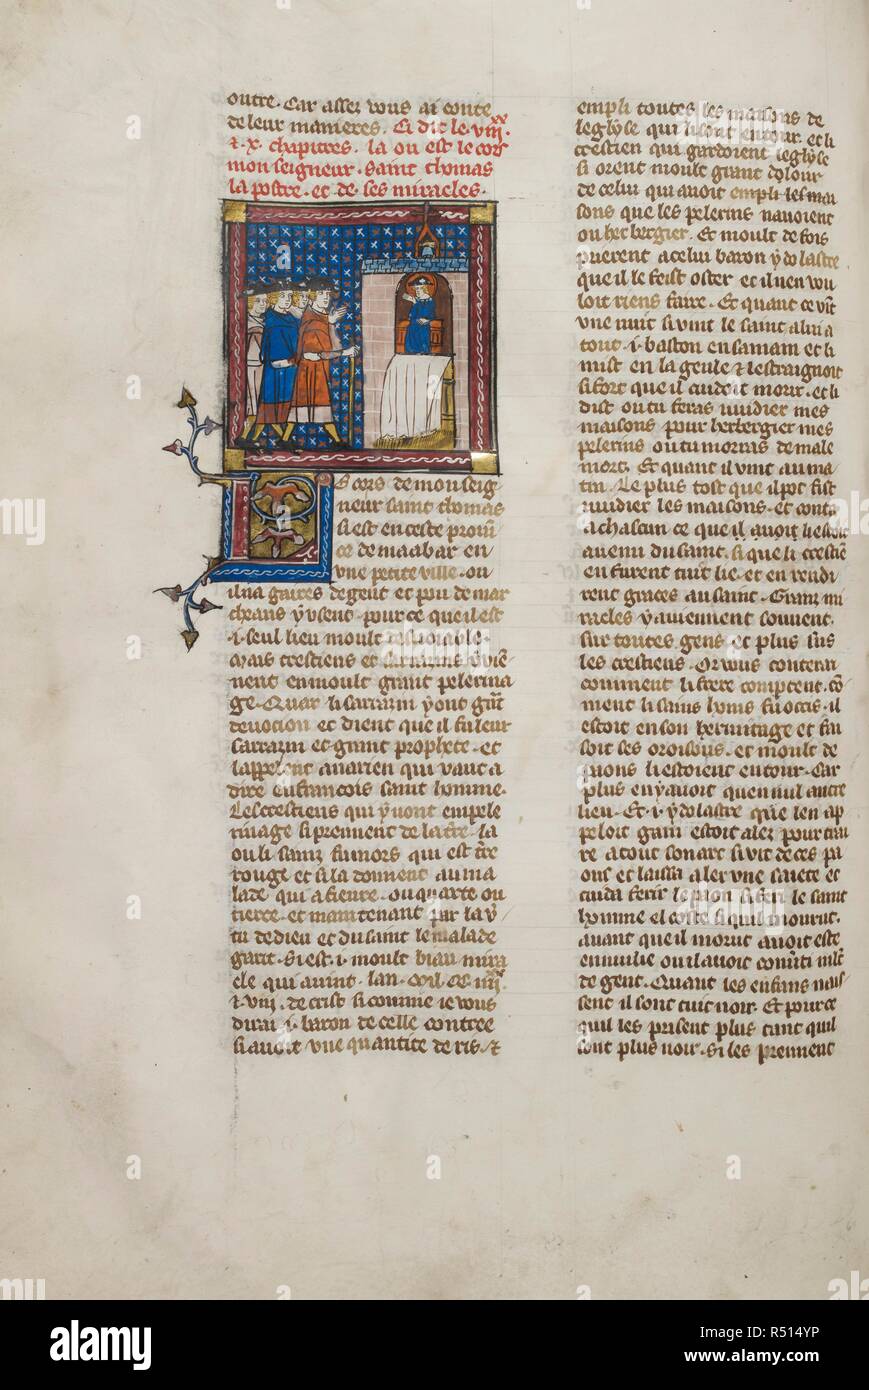 outre. Car assez vous ai conte
de leur manieres. Ci dit le viii.xx
& x. chapitres. la ou est le cors
mon seigneur. saint thomas
la postre. et de ses miracles.
Le cors de mon seig
neur saint thomas
si est en ceste prouin
ce de maabar en
vne petite ville. ou
il na gaires de gent et pou de mar
cheans y vienent. pour ce que il est
.i. seul lieu moult
Mais crestiens et sarrazins y vie
nent en moult grant pelerina
ge. Quar li sarrazin y ont grant
deuocion et dient que il fu leur
sarrazin et grant prophete. et
lappelent anarien qui vaut a
dire en francois saint homme.
Les crestiens qui y vont en pele
rinage si prennent de la tre. la
ou li sainz fu mors qui est tre
rouge et si la donnent au ma
lade qui a fieure. ou quarte ou
tierce. et maintenant par la v
tu de dieu et du saint le malade
garit. Si est .i. moult biau mira
cle qui auint. lan. .cc. iiii.xx
& viii. de crist si comme ie vous
dirai .i. baron de celle contree
si auoit vne quantite de ris. &
empli toutes les maisons de
leglyse qui li sont entour. et li
crestien qui gardoient leglyse
si orent moult grant dolour
de celui qui auoit empli les mai
sons que les pelerins nauoient
ou herbergier. Et moult de fois
puerent a celui baron ydolastre
que il le feist oster et il nen vou
loit riens faire. Et quant ce vint
vne nuit si vint le saint a lui a
tout .i. baston en sa main et li
mist en la geule & lestraignoit
si fort que il cuidoit morir. et li
dist ou tu feras vuidier mes
maisons pour herbergier mes
pelerins ou tu morras de male
mort. Et quant il vint au ma
tin. Le plus tost que il pot fist
vuidier les maisons. et conta
a chascun ce que il auoit li estoit
auenu du saint. si que li crestien
en furent tuit lie. et en rendi
rent graces au saint. Granz mi
racles y auiennent souuent.
sur toutes gens et plus sus
les crestiens. Or vous conterai
comment li frere comptent. co
ment li sains homs fu occis. il
estoit en son hermitage et fai
soit ses oroisons. et moult de
paons li estoient entour. Car
plus en y auoit quen nul autre
lieu. Et .i. ydolastre que len ap
peloit gaui estoit alez pour trai
re a tout son arc si vit de ces pa
ons et laissa aler vne saiete et
cuida ferir le paon si feri le saint
homme el coste si quil mourut.
auant que il morut auoit este
en nubie ou il auoit conuerti mlt
de gent. Quant les enfans nais
sent il sont tuit noir. Et pour ce
quil les prisent plus tant quil
sont plus noir. Si les prennent
alamy
Image ID: R514YP
www.alamy.com